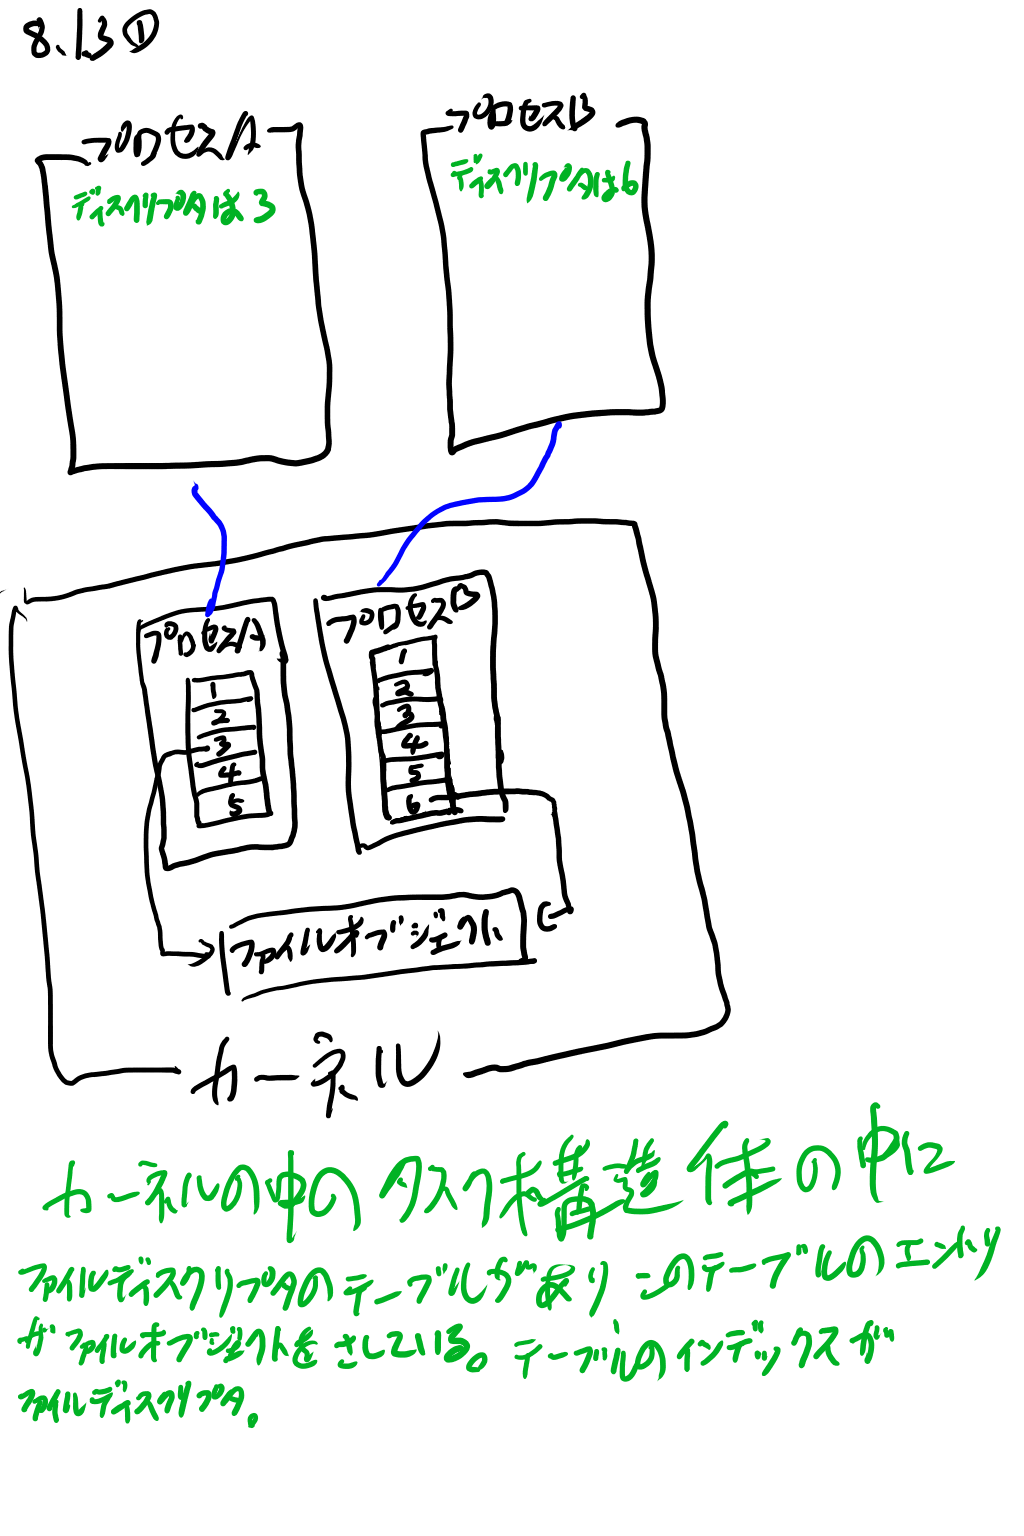 8.13①
プロセスA
ディスクリプタは3
プロセスB
ディスクリプタは6
プロセスA
1
2
3
4
5
プロセスB
1
2
3
4
5
6
ファイルオブジェクト
カーネル
カーネルの中のタスク構造体の中に
ファイルディスクリプタのテーブルがあり このテーブルのエントリ
が ファイルオブジェクトを さしている。 テーブルのインデックスが
ファイルディスクリプタ。